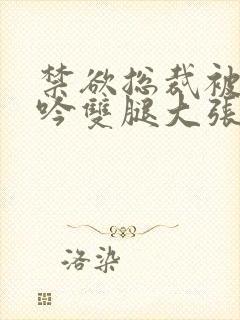 禁欲总裁被
吟雙腿大張
洛染